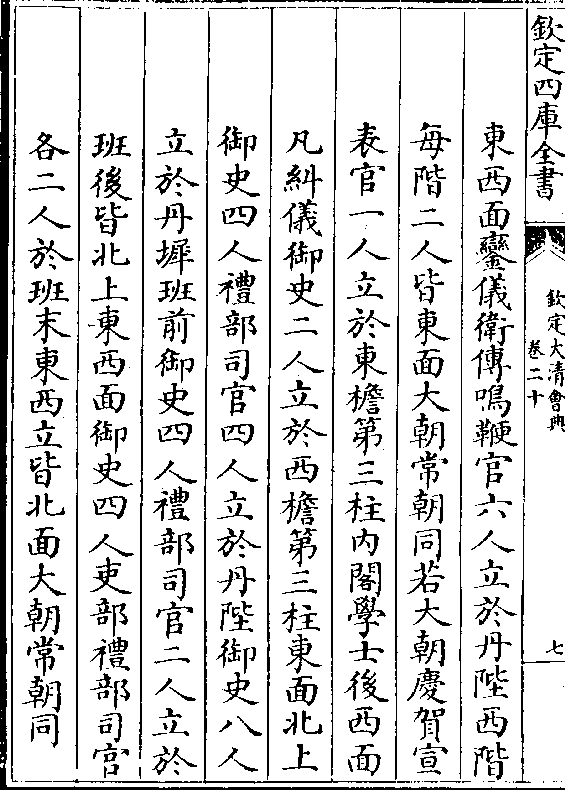 欽定四庫全書
欽定大清會典
卷二十
七
東西面鑾儀衛傳鳴鞭官六人立於丹陛西階
每階二人皆東面大朝常朝同若大朝慶賀宣
表官一人立於東檐第三柱內閣學士後西面
凡糾儀御史二人立於西檐第三柱東面北上
御史四人禮部司官四人立於丹陛御史八人
立於丹墀班前御史四人禮部司官二人立於
班後皆北上東西面御史四人吏部禮部司官
各二人於班末東西立皆北面大朝常朝同